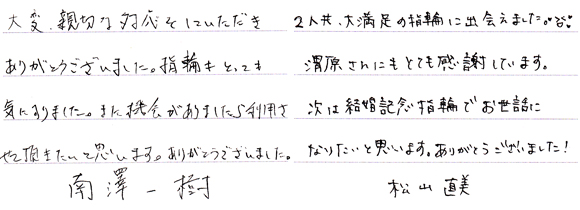 大変、親切な対応をしていただき
ありがとうございました。指輪もとっても
気に入りました。また機会がありましたら利用さ
せて頂きたいと思います。ありがとうございました。
南澤一樹
2人共、大満足の指輪に出会えました。
湯原さんにもとても感謝しています。
次は結婚記念指輪でお世話に
なりたいと思います。ありがとうございました!
松山直美